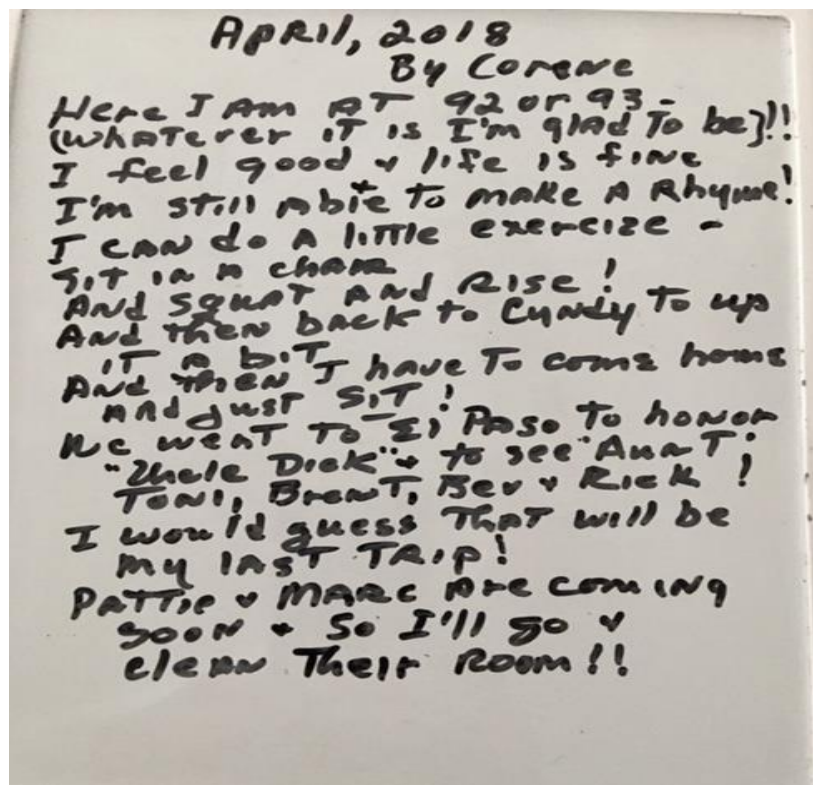 April, 2018
By Corene
Here I Am AT 92 or 93 -
(whatever iT is I'm glad To be)!!
I feel good & life is fine
I'm still able to make A Rhyme!
I can do A little exercize -
Sit in a chair
And squat And Rise!
And then back to Cyndy To up
it a bit
And then I have To come home
And just sit!
We went To El Paso To honor
"Uncle Dick" & to see "Aunt"
Toni, Brent, Bev & Rick!
I would guess That will be
my last Trip!
Pattie & Marc Are coming
soon & So I'll go &
clean Their Room!!